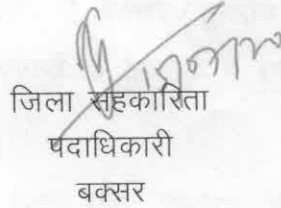 जिला सहकारिता
पदाधिकारी
बक्सर